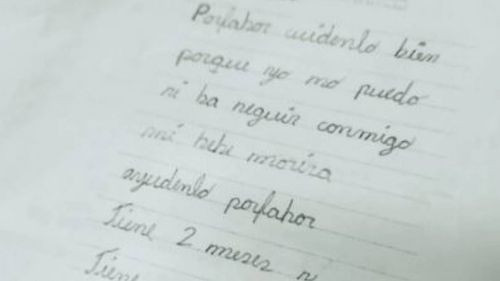 Porfabor cuidenlo bien
porque yo mo puedo
ni ba neguir conmigo
mi bebe morira
ayudenlo porfabor
Tiene 2 meses
Tiene